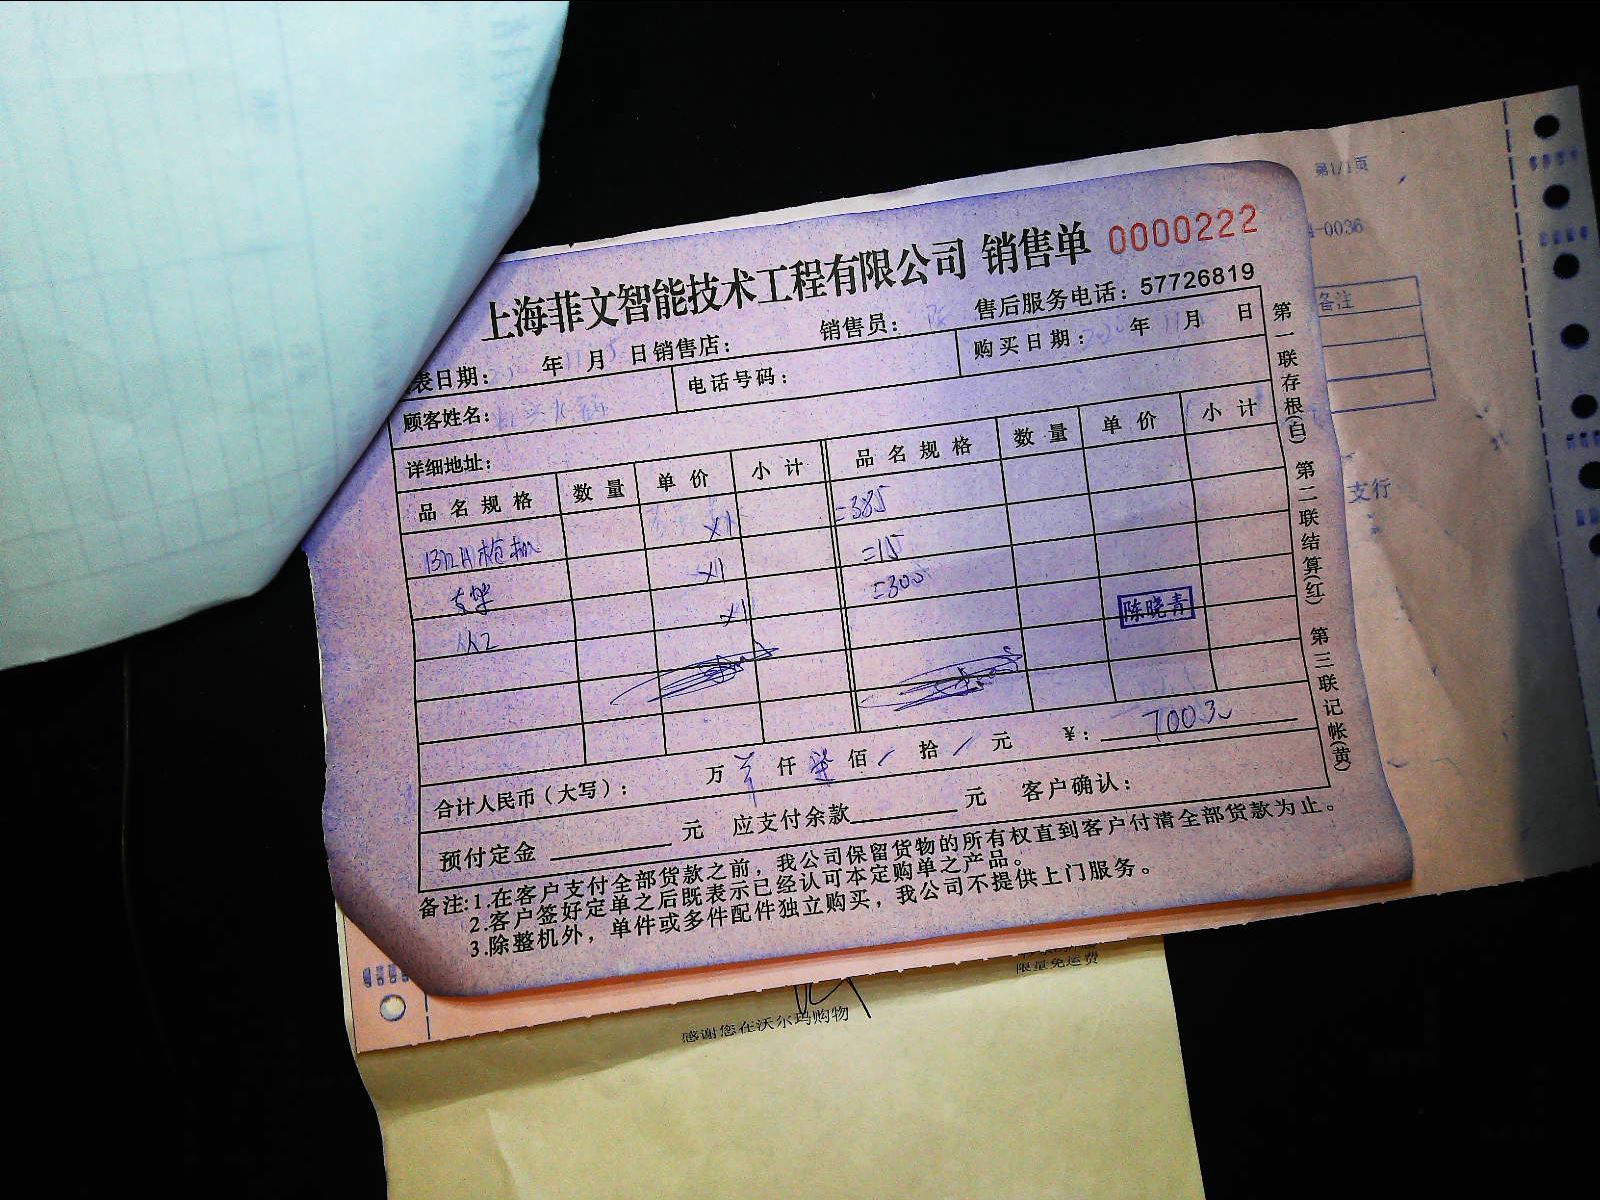 第1/1页
-0036
上海菲文智能技术工程有限公司 销售单 0000222
售后服务电话：57726819
表日期： 年 11 月 5 日 销售店： 销售员：
顾客姓名： 电话号码： 购买日期： 年 11 月 日
详细地址：
品名规格 数量 单价 小计 品名规格 数量 单价 小计
枪机 X1 =385
支架 X1 =15
X1 =300
陈晓青
合计人民币（大写）： 万 仟 柒 佰 / 拾 / 元 ￥： 700元
预付定金 元 应支付余款 元 客户确认：
备注:1.在客户支付全部货款之前，我公司保留货物的所有权直到客户付清全部货款为止。
2.客户签好定单之后既表示已经认可本定购单之产品。
3.除整机外，单件或多件配件独立购买，我公司不提供上门服务。
第一联存根(白) 第二联结算(红) 第三联记帐(黄)
备注
支行
限量免运费
感谢您在沃尔玛购物